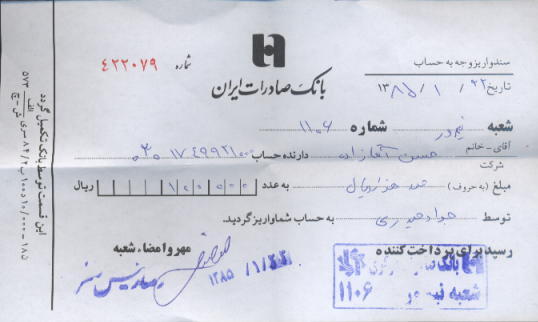 سند واریز وجه به حساب
شماره ۴۲۲۰۷۹
بانک صادرات ایران
تاریخ ۲۲ / ۱ / ۱۳۸۵
شعبه نیم ور شماره ۱۱۰۶
آقای - خانم
شرکت
حسن آقازاده دارنده حساب
مبلغ (به حروف) صد هزار ریال به عدد ۱۰۰۰۰۰ ریال
توسط جواد حیدری به حساب شما واریز گردید.
رسید برای پرداخت کننده
مهر و امضاء شعبه
بانک
شعبه نیم ور
۱۱۰۶
۱۳۸۵/۱/۲۲
این قسمت توسط بانک تکمیل گردد
الف
۵۷۳